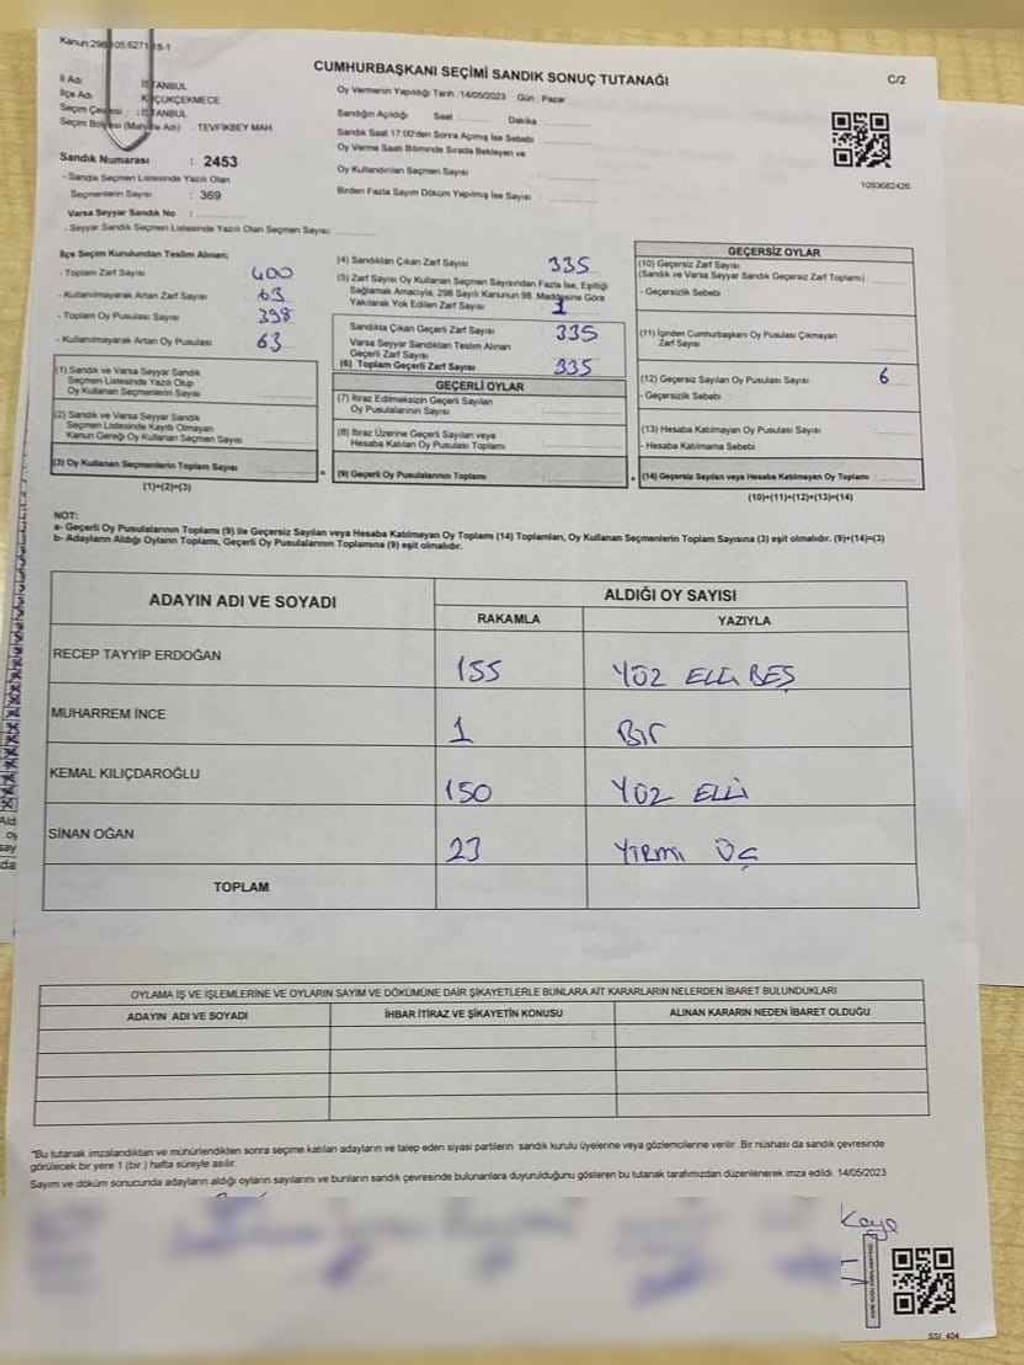 CUMHURBAŞKANI SEÇİMİ SANDIK SONUÇ TUTANAĞI
C/2
İl Adı
İlçe Adı
KÜÇÜKÇEKMECE
Seçim Bölgesi (Mahalle Adı) : TEVFİKBEY MAH.
Sandık Numarası : 2453
- Sandık Seçmen Listesinde Yazılı Olan
Seçmenlerin Sayısı : 369
Varsa Seyyar Sandık No :
- Seyyar Sandık Seçmen Listesinde Yazılı Olan Seçmen Sayısı:
Oy Vermenin Yapıldığı Tarih :14/05/2023 Gün : Pazar
Sandığın Açıldığı Saat Dakika
Sandık Saat 17:00'den Sonra Açılmış İse Sebebi
Oy Verme Saati Bitiminde Sırada Bekleyen ve
Oy Kullandırılan Seçmen Sayısı
Birden Fazla Sayım Döküm Yapılmış İse Sayısı
1093682426
İlçe Seçim Kurulundan Teslim Alınan;
- Toplam Zarf Sayısı 400
- Kullanılmayarak Artan Zarf Sayısı 63
- Toplam Oy Pusulası Sayısı 398
- Kullanılmayarak Artan Oy Pusulası 63
(1) Sandık ve Varsa Seyyar Sandık
Seçmen Listesinde Yazılı Olup
Oy Kullanan Seçmenlerin Sayısı
(2) Sandık ve Varsa Seyyar Sandık
Seçmen Listesinde Kayıtlı Olmayan
Kanun Gereği Oy Kullanan Seçmen Sayısı
(3) Oy Kullanan Seçmenlerin Toplam Sayısı
(1)+(2)=(3)
(4) Sandıktan Çıkan Zarf Sayısı 335
(5) Zarf Sayısı Oy Kullanan Seçmen Sayısından Fazla İse, Eşitliği
Sağlamak Amacıyla, 298 Sayılı Kanunun 98. Maddesine Göre
Yakılarak Yok Edilen Zarf Sayısı 1
Sandıkta Çıkan Geçerli Zarf Sayısı 335
Varsa Seyyar Sandıktan Teslim Alınan
Geçerli Zarf Sayısı
(6) Toplam Geçerli Zarf Sayısı 335
GEÇERLİ OYLAR
(7) İtiraz Edilmeksizin Geçerli Sayılan
Oy Pusulalarının Sayısı
(8) İtiraz Üzerine Geçerli Sayılan veya
Hesaba Katılan Oy Pusulası Toplamı
(9) Geçerli Oy Pusulalarının Toplamı
GEÇERSİZ OYLAR
(10) Geçersiz Zarf Sayısı
(Sandık ve Varsa Seyyar Sandık Geçersiz Zarf Toplamı)
- Geçersizlik Sebebi
(11) İçinden Cumhurbaşkanı Oy Pusulası Çıkmayan
Zarf Sayısı
(12) Geçersiz Sayılan Oy Pusulası Sayısı 6
- Geçersizlik Sebebi
(13) Hesaba Katılmayan Oy Pusulası Sayısı
- Hesaba Katılmama Sebebi
(14) Geçersiz Sayılan veya Hesaba Katılmayan Oy Toplamı
(10)+(11)+(12)+(13)=(14)
NOT:
a- Geçerli Oy Pusulalarının Toplamı (9) ile Geçersiz Sayılan veya Hesaba Katılmayan Oy Toplamı (14) Toplamları, Oy Kullanan Seçmenlerin Toplam Sayısına (3) eşit olmalıdır. (9)+(14)=(3)
b- Adayların Aldığı Oyların Toplamı, Geçerli Oy Pusulalarının Toplamına (9) eşit olmalıdır.
ADAYIN ADI VE SOYADI
ALDIĞI OY SAYISI
RAKAMLA YAZIYLA
RECEP TAYYİP ERDOĞAN 155 YÜZ ELLİ BEŞ
MUHARREM İNCE 1 Bir
KEMAL KILIÇDAROĞLU 150 YÜZ ELLİ
SİNAN OĞAN 23 YİRMİ ÜÇ
TOPLAM
OYLAMA İŞ VE İŞLEMLERİNE VE OYLARIN SAYIM VE DÖKÜMÜNE DAİR ŞİKAYETLERLE BUNLARA AİT KARARLARIN NELERDEN İBARET BULUNDUKLARI
ADAYIN ADI VE SOYADI İHBAR İTİRAZ VE ŞİKAYETİN KONUSU ALINAN KARARIN NEDEN İBARET OLDUĞU
"Bu tutanak imzalandıktan ve mühürlendikten sonra seçime katılan adayların ve talep eden siyasi partilerin sandık kurulu üyelerine veya gözlemcilerine verilir. Bir nüshası da sandık çevresinde
görülecek bir yere 1 (bir) hafta süreyle asılır.
Sayım ve döküm sonucunda adayların aldığı oyların sayılarını ve bunların sandık çevresinde bulunanlara duyurulduğunu gösteren bu tutanak tarafımızdan düzenlenerek imza edildi. 14/05/2023